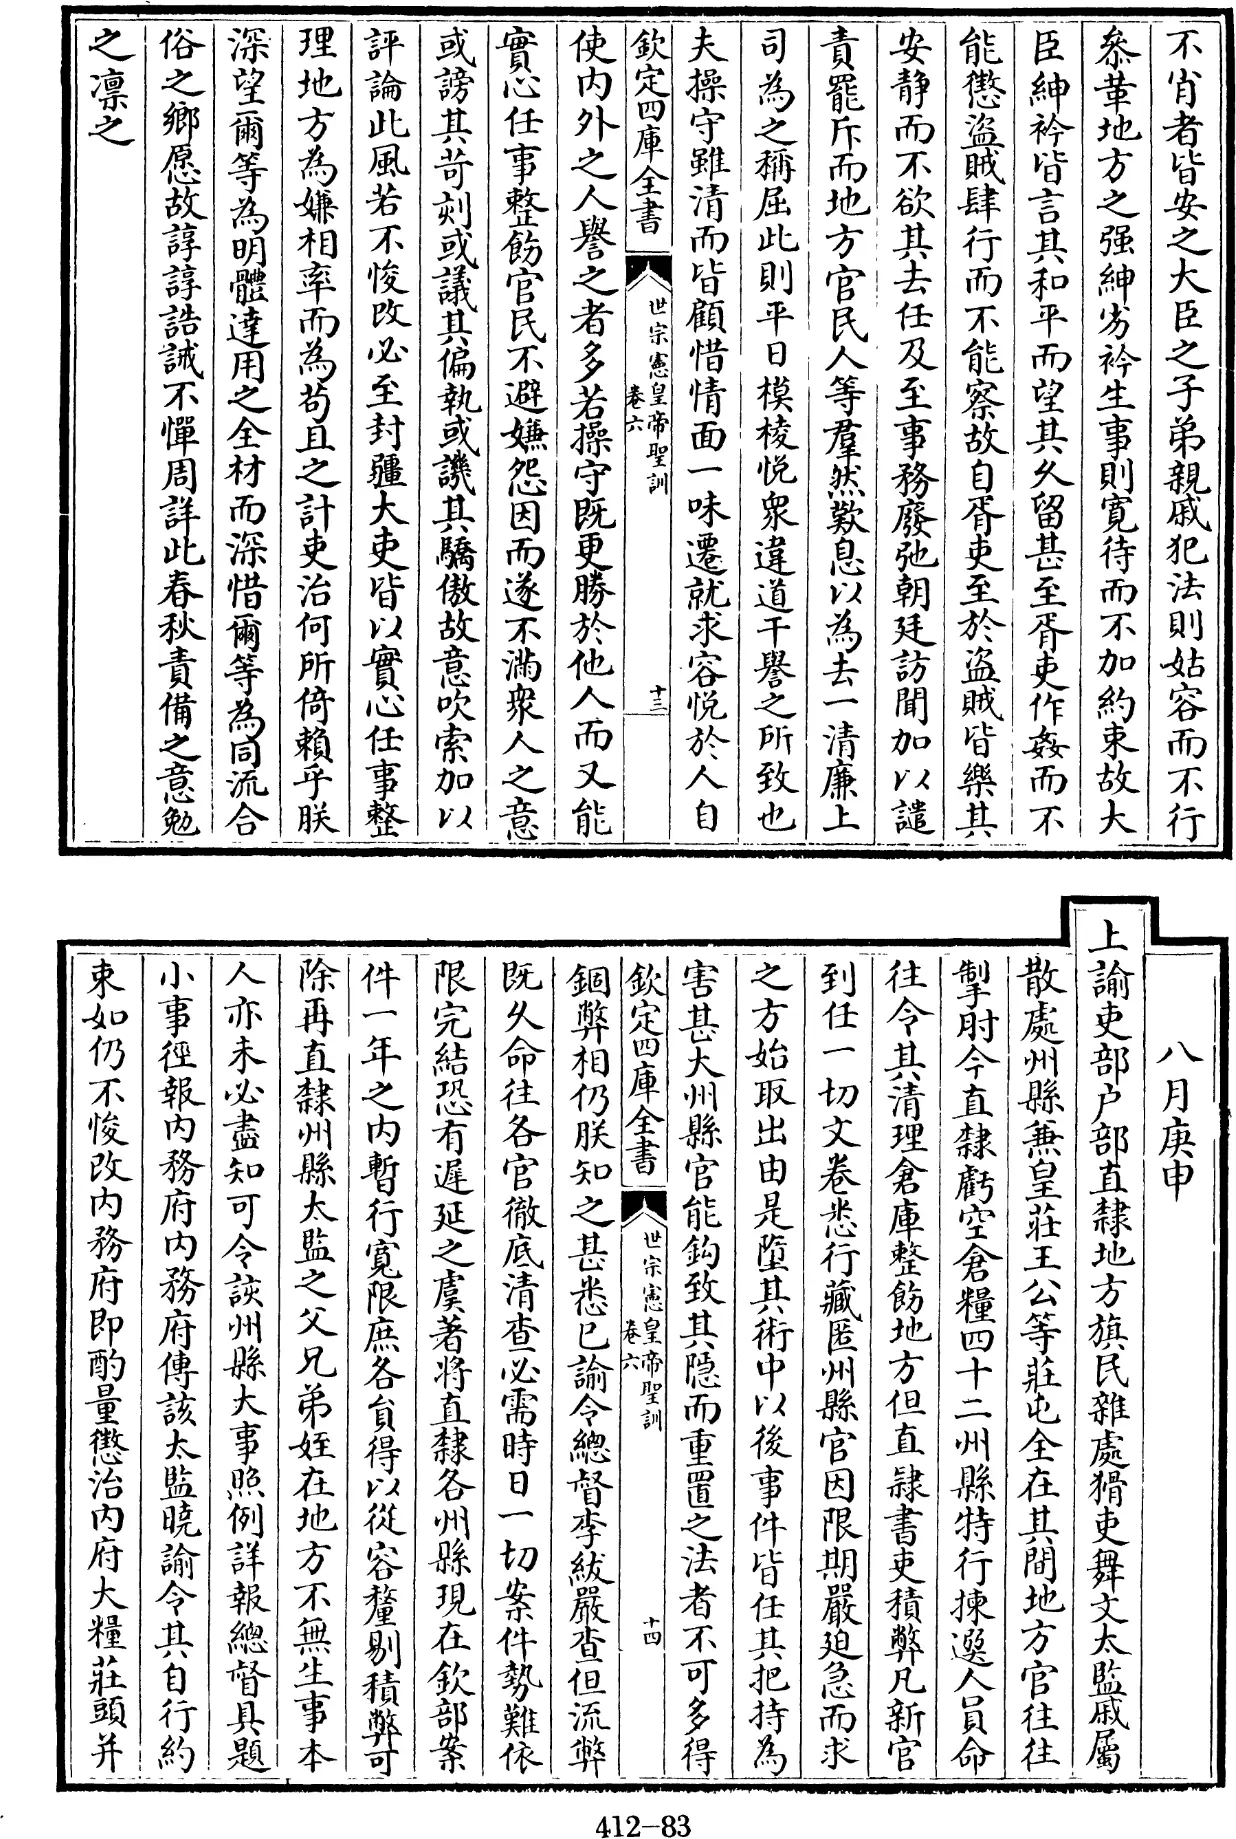 不肖者皆安之大臣之子弟親戚犯法則姑容而不行
叅革地方之强紳劣衿生事則寛待而不加約束故大
臣紳衿皆言其和平而望其久留甚至胥吏作姦而不
能懲盜賊肆行而不能察故自胥吏至於盜賊皆樂其
安静而不欲其去任及至事務廢弛朝廷訪聞加以譴
責罷斥而地方官民人等羣然歎息以為去一清廉上
司為之稱屈此則平日模棱悦衆違道干譽之所致也
夫操守雖清而皆顧惜情面一味遷就求容悦於人自
欽定四庫全書
世宗憲皇帝聖訓
卷六
十三
使内外之人譽之者多若操守既更勝於他人而又能
實心任事整飭官民不避嫌怨因而遂不滿衆人之意
或謗其苛刻或議其偏執或譏其驕傲故意吹索加以
評論此風若不悛改必至封疆大吏皆以實心任事整
理地方為嫌相率而為苟且之計吏治何所倚賴乎朕
深望爾等為明體達用之全材而深惜爾等為同流合
俗之鄉愿故諄諄誥誡不憚周詳此春秋責備之意勉
之凛之
八月庚申
上諭吏部户部直隸地方旗民雜處猾吏舞文太監戚屬
散處州縣兼皇莊王公等莊屯全在其間地方官往往
掣肘今直隸虧空倉糧四十二州縣特行揀選人員命
往令其清理倉庫整飭地方但直隸書吏積弊凡新官
到任一切文卷悉行藏匿州縣官因限期嚴迫急而求
之方始取出由是墮其術中以後事件皆任其把持為
害甚大州縣官能鈎致其隱而重置之法者不可多得
欽定四庫全書
世宗憲皇帝聖訓
卷六
十四
錮弊相仍朕知之甚悉已諭令總督李紱嚴查但流弊
既久命往各官徹底清查必需時日一切案件勢難依
限完結恐有遲延之虞著將直隸各州縣現在欽部案
件一年之内暫行寛限庶各員得以從容釐剔積弊可
除再直隸州縣太監之父兄弟姪在地方不無生事本
人亦未必盡知可令該州縣大事照例詳報總督具題
小事徑報内務府内務府傳該太監曉諭令其自行約
束如仍不悛改内務府即酌量懲治内府大糧莊頭并
412-83